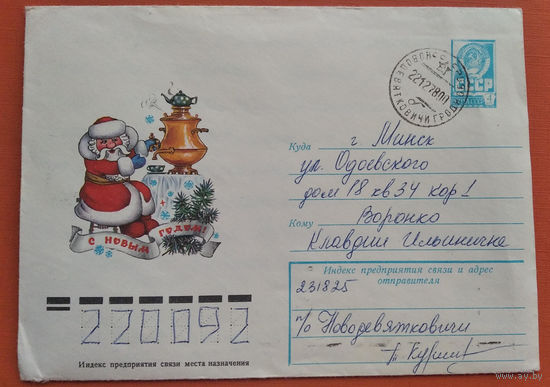 С НОВЫМ ГОДОМ!
НОВОДЕВЯТКОВИЧИ ГРОДН
221278
СССР
Куда г. Минск
ул. Одоевского
дом 18 кв 34 кор 1
Кому Воронко
Клавдии Ильиничне
Индекс предприятия связи и адрес отправителя
231825
п/о Новодевятковичи
220092
Индекс предприятия связи места назначения
www.ay.by